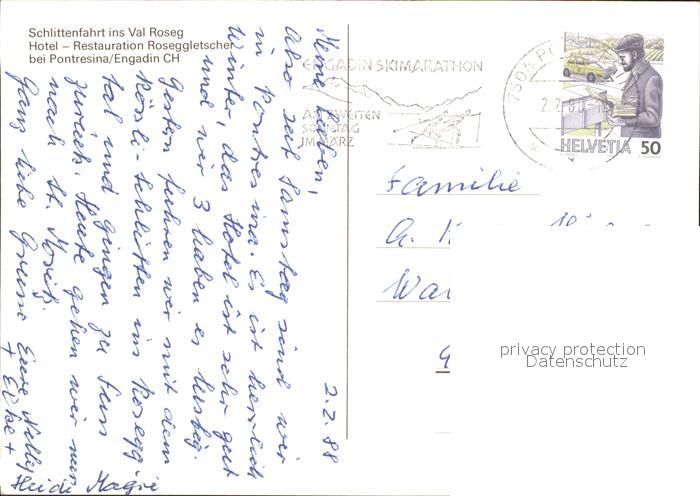 Schlittenfahrt ins Val Roseg
Hotel – Restauration Roseggletscher
bei Pontresina/Engadin CH
ENGADIN SKIMARATHON
AM ZWEITEN
SONNTAG
IM MÄRZ
7504 P
2.2.8
HELVETIA 50
2.2.88
Meine Lieben,
Also seit Samstag sind wir
in Pontresina. Es ist herrlich
Winter, das Hotel ist sehr gut
und wir 3 haben es lustig.
Gestern fuhren wir mit dem
Rössli-Schlitten ins Rosegg
tal und gingen zu Fuss
zurück. Heute gehen wir nur
nach St. Moritz.
Ganz liebe Grüsse Eure Nelly
+ Elise +
Heidi
Familie
A.
privacy protection
Datenschutz